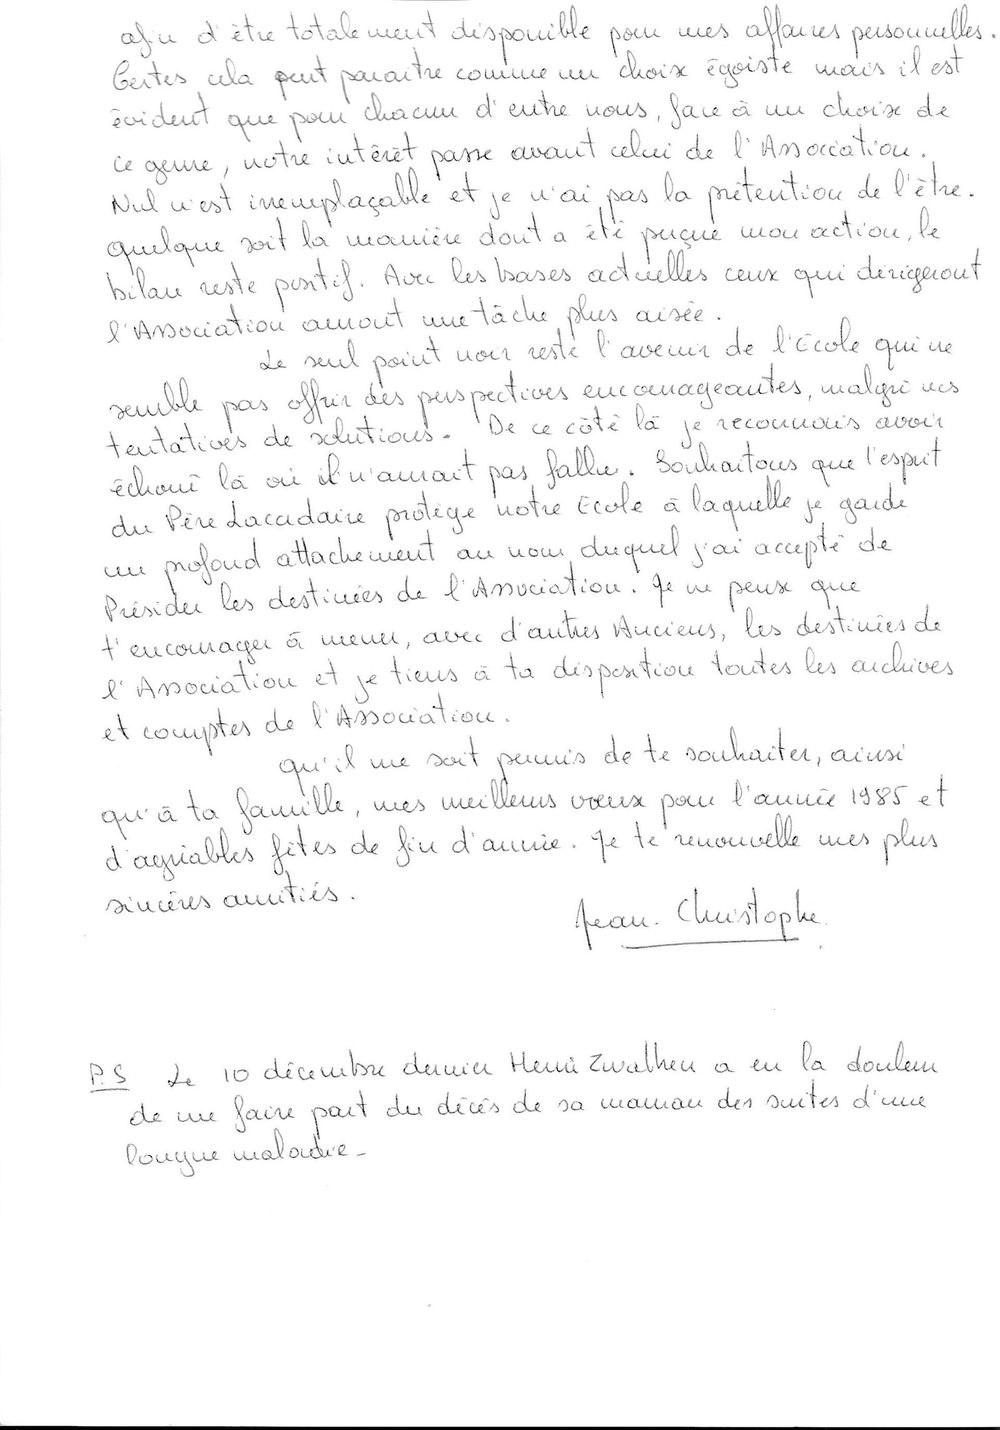 afin d'être totalement disponible pour mes affaires personnelles.
Certes cela peut paraitre comme un choix égoïste mais il est
évident que pour chacun d'entre nous, face à un choix de
ce genre, notre intérêt passe avant celui de l'Association.
Nul n'est irremplaçable et je n'ai pas la prétention de l'être.
Quelque soit la manière dont a été perçue mon action, le
bilan reste positif. Avec les bases actuelles ceux qui dirigeront
l'Association auront une tâche plus aisée.
Le seul point noir reste l'avenir de l'Ecole qui ne
semble pas offrir des perspectives encourageantes, malgré nos
tentatives de solutions. De ce côté là je reconnais avoir
échoué là où il n'aurait pas fallu. Souhaitons que l'esprit
du Père Lacordaire protège notre Ecole à laquelle je garde
un profond attachement au nom duquel j'ai accepté de
Présider les destinées de l'Association. Je ne peux que
t'encourager à mener, avec d'autres Anciens, les destinées de
l'Association et je tiens à ta disposition toutes les archives
et comptes de l'Association.
Qu'il me soit permis de te souhaiter, ainsi
qu'à ta famille, mes meilleurs voeux pour l'année 1985 et
d'agréables fêtes de fin d'année. Je te renouvelle mes plus
sincères amitiés.
Jean-Christophe.
P.S Le 10 décembre dernier Henri Zwalhen a eu la douleur
de me faire part du décès de sa maman des suites d'une
longue maladie-